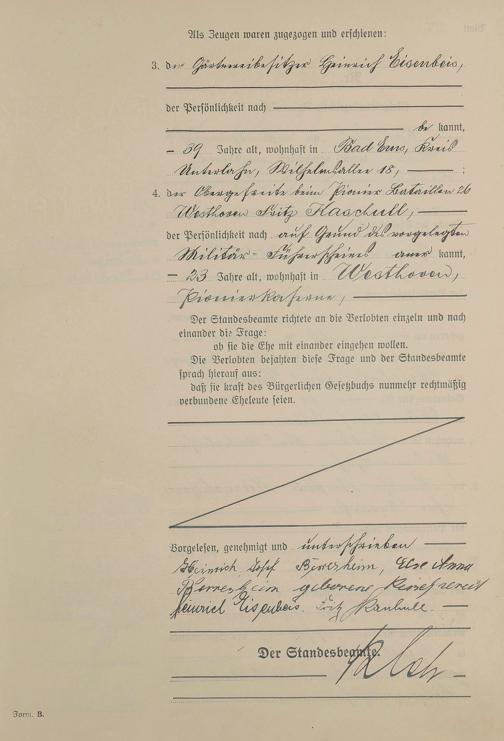 Als Zeugen waren zugezogen und erschienen:
3. der Gärtnereibesitzer Heinrich Eisenbeis,
der Persönlichkeit nach
be kannt,
39 Jahre alt, wohnhaft in Bad Ems, Kreis
Unterlahn, Wilhelmsallee 18, ;
4. der Obergefreite beim Pionier Bataillon 26
Westhoven Fritz
der Persönlichkeit nach auf Grund des vorgelegten
Militär-Führerscheins aner kannt,
23 Jahre alt, wohnhaft in Westhoven,
Pionierkaserne,
Der Standesbeamte richtete an die Verlobten einzeln und nach
einander die Frage:
ob sie die Ehe mit einander eingehen wollen.
Die Verlobten bejahten diese Frage und der Standesbeamte
sprach hierauf aus:
daß sie kraft des Bürgerlichen Gesetzbuchs nunmehr rechtmäßig
verbundene Eheleute seien.
Vorgelesen, genehmigt und unterschrieben
Heinrich Josef Bornheim, Else Anna
Bornheim geborene
Heinrich Eisenbeis. Fritz
Der Standesbeamte.
Form. B.